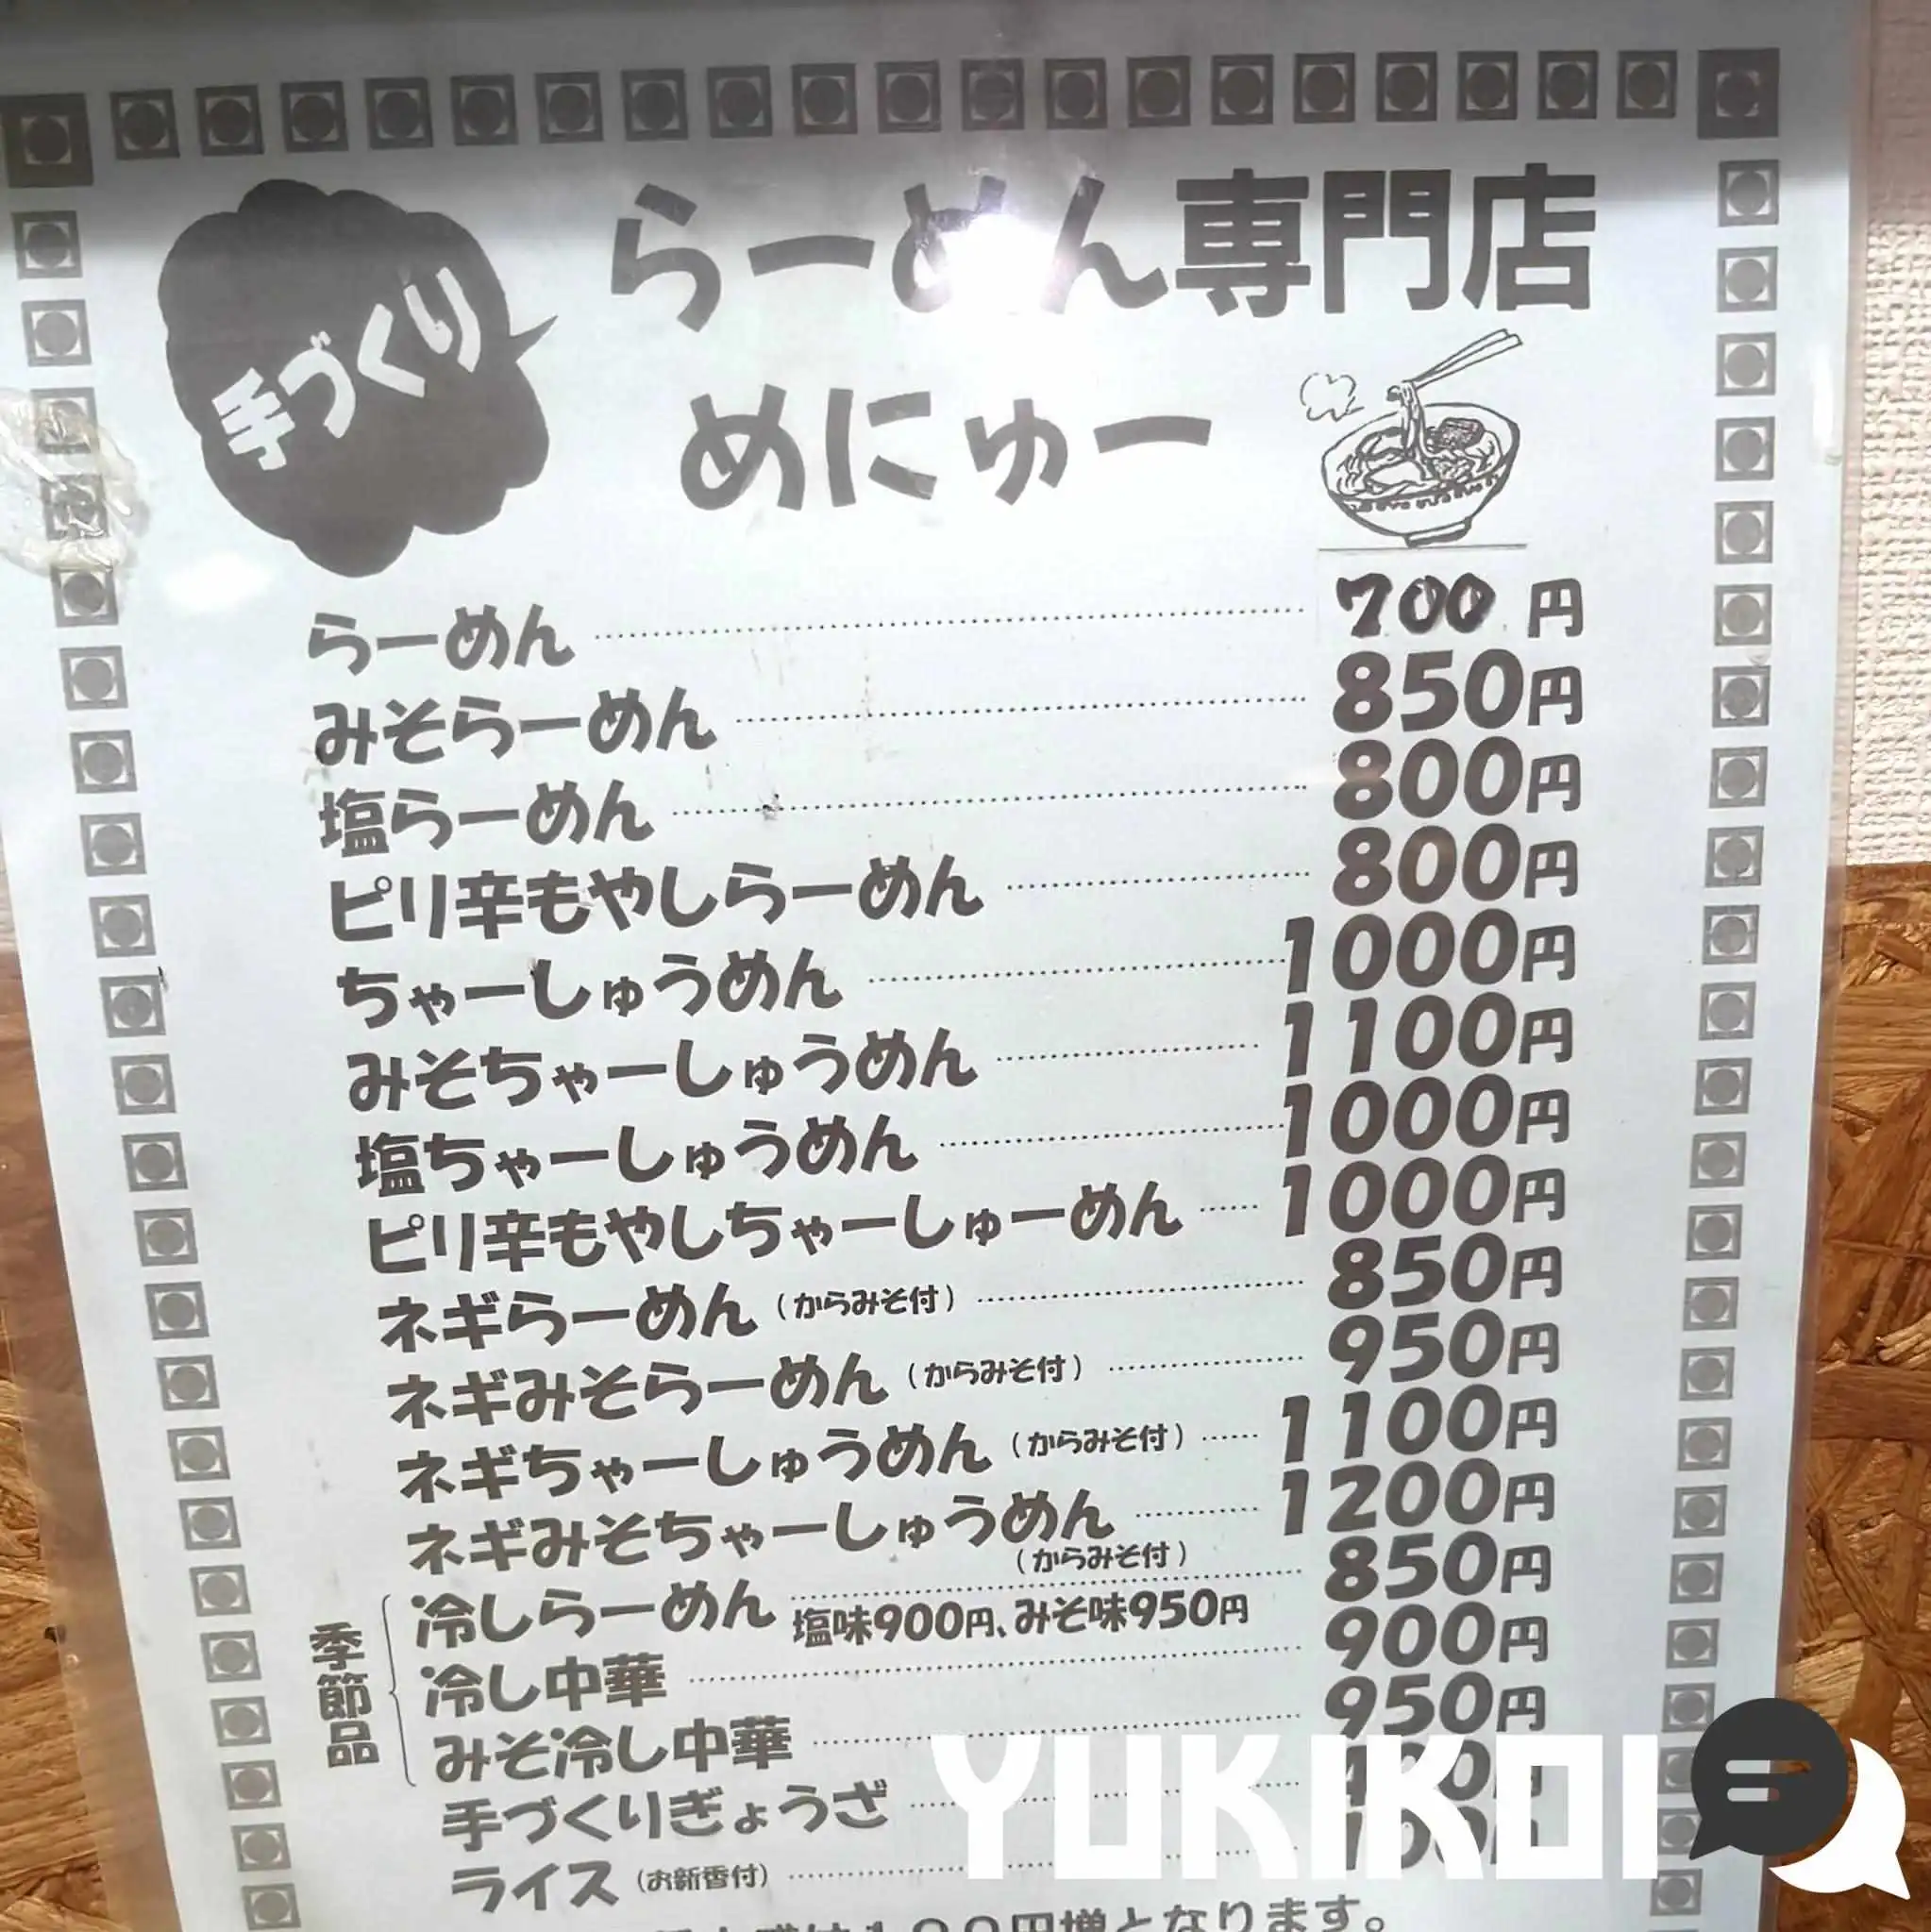 手づくり
らーめん専門店
めにゅー
らーめん 700円
みそらーめん 850円
塩らーめん 800円
ピリ辛もやしらーめん 800円
ちゃーしゅうめん 1000円
みそちゃーしゅうめん 1100円
塩ちゃーしゅうめん 1000円
ピリ辛もやしちゃーしゅーめん 1000円
ネギらーめん(からみそ付) 850円
ネギみそらーめん(からみそ付) 950円
ネギちゃーしゅうめん(からみそ付) 1100円
ネギみそちゃーしゅうめん 1200円
(からみそ付)
季節品
冷しらーめん 850円
塩味900円、みそ味950円
冷し中華 900円
みそ冷し中華 950円
手づくりぎょうざ
ライス(お新香付)
100円増となります。
YUKIKOI